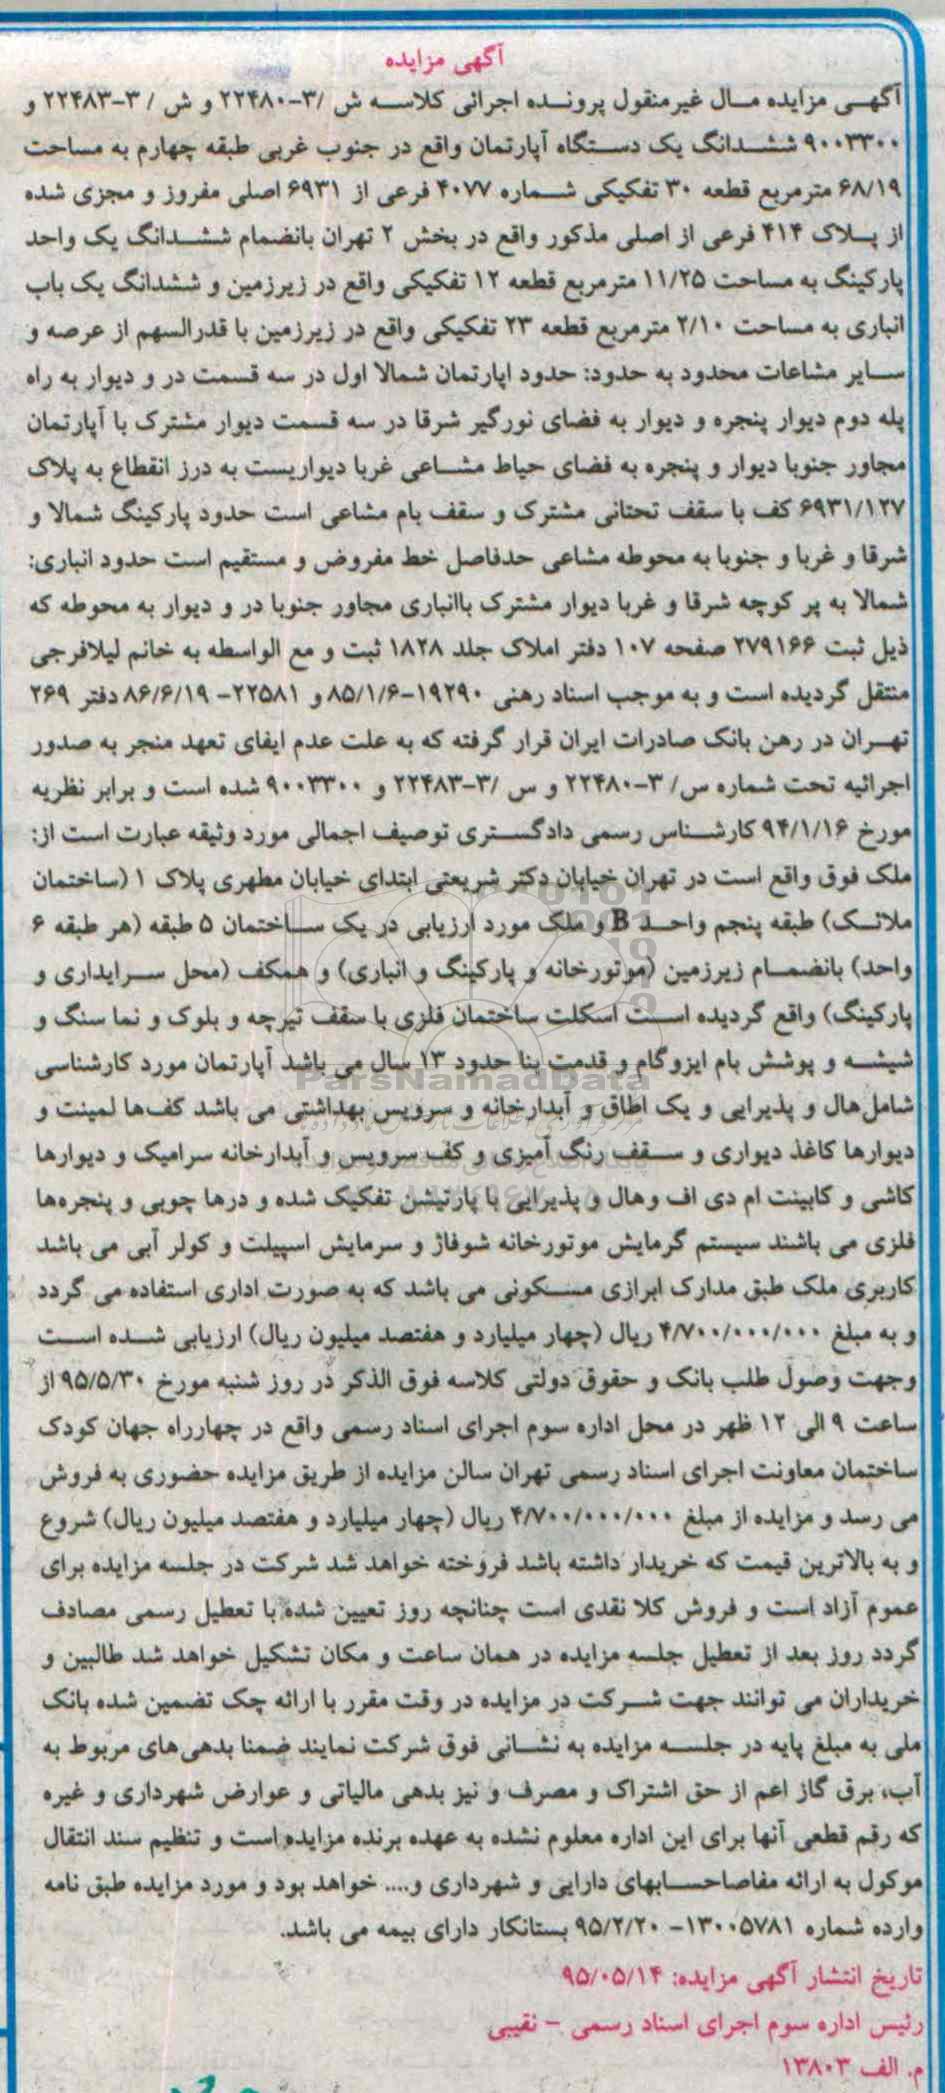 آگهی مزایده
آگهی مزایده مال غیرمنقول پرونده اجرائی کلاسه ش /۳-۲۲۴۸۰ و ش / ۳-۲۲۴۸۳ و
۹۰۰۳۳۰۰ ششدانگ یک دستگاه آپارتمان واقع در جنوب غربی طبقه چهارم به مساحت
۶۸/۱۹ مترمربع قطعه ۳۰ تفکیکی شماره ۴۰۷۷ فرعی از ۶۹۳۱ اصلی مفروز و مجزی شده
از پلاک ۴۱۴ فرعی از اصلی مذکور واقع در بخش ۲ تهران بانضمام ششدانگ یک واحد
پارکینگ به مساحت ۱۱/۲۵ مترمربع قطعه ۱۲ تفکیکی واقع در زیرزمین و ششدانگ یک باب
انباری به مساحت ۲/۱۰ مترمربع قطعه ۲۳ تفکیکی واقع در زیرزمین با قدرالسهم از عرصه و
سایر مشاعات محدود به حدود: حدود اپارتمان شمالا اول در سه قسمت در و دیوار به راه
پله دوم دیوار پنجره و دیوار به فضای نورگیر شرقا در سه قسمت دیوار مشترک با آپارتمان
مجاور جنوبا دیوار و پنجره به فضای حیاط مشاعی غربا دیواریست به درز انقطاع به پلاک
۶۹۳۱/۱۲۷ کف با سقف تحتانی مشترک و سقف بام مشاعی است حدود پارکینگ شمالا و
شرقا و غربا و جنوبا به محوطه مشاعی حدفاصل خط مفروض و مستقیم است حدود انباری:
شمالا به پر کوچه شرقا و غربا دیوار مشترک باانباری مجاور جنوبا در و دیوار به محوطه که
ذیل ثبت ۲۷۹۱۶۶ صفحه ۱۰۷ دفتر املاک جلد ۱۸۲۸ ثبت و مع الواسطه به خانم لیلافرجی
منتقل گردیده است و به موجب اسناد رهنی ۱۹۲۹۰-۸۵/۱/۶ و ۲۲۵۸۱- ۸۶/۶/۱۹ دفتر ۲۶۹
تهران در رهن بانک صادرات ایران قرار گرفته که به علت عدم ایفای تعهد منجر به صدور
اجرائیه تحت شماره س/ ۳-۲۲۴۸۰ و س /۳-۲۲۴۸۳ و ۹۰۰۳۳۰۰ شده است و برابر نظریه
مورخ ۹۴/۱/۱۶ کارشناس رسمی دادگستری توصیف اجمالی مورد وثیقه عبارت است از:
ملک فوق واقع است در تهران خیابان دکتر شریعتی ابتدای خیابان مطهری پلاک ۱ (ساختمان
ملائک) طبقه پنجم واحد B و ملک مورد ارزیابی در یک ساختمان ۵ طبقه (هر طبقه ۶
واحد) بانضمام زیرزمین (موتورخانه و پارکینگ و انباری) و همکف (محل سرایداری و
پارکینگ) واقع گردیده است اسکلت ساختمان فلزی با سقف تیرچه و بلوک و نما سنگ و
شیشه و پوشش بام ایزوگام و قدمت بنا حدود ۱۳ سال می باشد آپارتمان مورد کارشناسی
شامل‌هال و پذیرایی و یک اطاق و آبدارخانه و سرویس بهداشتی می باشد کف‌ها لمینت و
دیوارها کاغذ دیواری و سقف رنگ آمیزی و کف سرویس و آبدارخانه سرامیک و دیوارها
کاشی و کابینت ام دی اف وهال و پذیرایی با پارتیشن تفکیک شده و درها چوبی و پنجره‌ها
فلزی می باشند سیستم گرمایش موتورخانه شوفاژ و سرمایش اسپیلت و کولر آبی می باشد
کاربری ملک طبق مدارک ابرازی مسکونی می باشد که به صورت اداری استفاده می گردد
و به مبلغ ۴/۷۰۰/۰۰۰/۰۰۰ ریال (چهار میلیارد و هفتصد میلیون ریال) ارزیابی شده است
وجهت وصول طلب بانک و حقوق دولتی کلاسه فوق الذکر در روز شنبه مورخ ۹۵/۵/۳۰ از
ساعت ۹ الی ۱۲ ظهر در محل اداره سوم اجرای اسناد رسمی واقع در چهارراه جهان کودک
ساختمان معاونت اجرای اسناد رسمی تهران سالن مزایده از طریق مزایده حضوری به فروش
می رسد و مزایده از مبلغ ۴/۷۰۰/۰۰۰/۰۰۰ ریال (چهار میلیارد و هفتصد میلیون ریال) شروع
و به بالاترین قیمت که خریدار داشته باشد فروخته خواهد شد شرکت در جلسه مزایده برای
عموم آزاد است و فروش کلا نقدی است چنانچه روز تعیین شده با تعطیل رسمی مصادف
گردد روز بعد از تعطیل جلسه مزایده در همان ساعت و مکان تشکیل خواهد شد طالبین و
خریداران می توانند جهت شرکت در مزایده در وقت مقرر با ارائه چک تضمین شده بانک
ملی به مبلغ پایه در جلسه مزایده به نشانی فوق شرکت نمایند ضمنا بدهی‌های مربوط به
آب، برق گاز اعم از حق اشتراک و مصرف و نیز بدهی مالیاتی و عوارض شهرداری و غیره
که رقم قطعی آنها برای این اداره معلوم نشده به عهده برنده مزایده است و تنظیم سند انتقال
موکول به ارائه مفاصاحسابهای دارایی و شهرداری و.... خواهد بود و مورد مزایده طبق نامه
وارده شماره ۱۳۰۰۵۷۸۱- ۹۵/۲/۲۰ بستانکار دارای بیمه می باشد.
تاریخ انتشار آگهی مزایده: ۹۵/۰۵/۱۴
رئیس اداره سوم اجرای اسناد رسمی - نقیبی
م. الف ۱۳۸۰۳
ParsNamadData